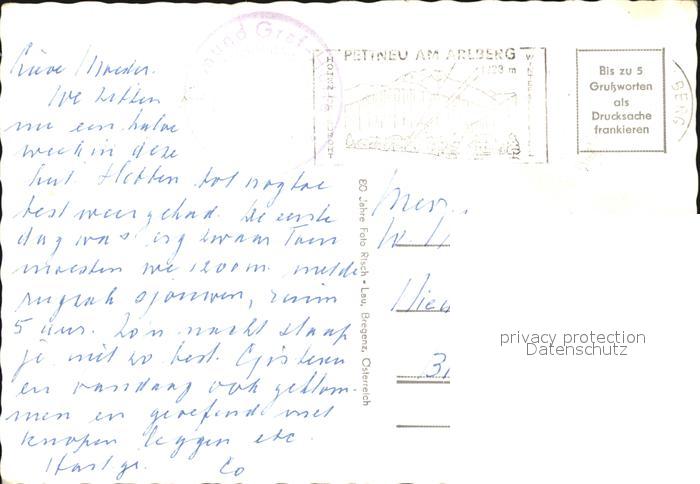 Lieve Moeder.
We zitten
nu een halve
week in deze
hut. Hebben tot nog toe
best weer gehad. De eerste
dag was erg zwaar Toen
moesten we 1200 m. met de
rugzak sjouwen, ruim
5 uur. Zo'n nacht slaap
je niet zo best. Gisteren
en vandaag ook geklom-
men en geoefend met
knopen leggen etc.
Hart. gr. Co
mund Graf
PETTNEU AM ARLBERG
Bis zu 5
Grußworten
als
Drucksache
frankieren
BERG
80 Jahre Foto Risch-Lau, Bregenz, Österreich
Mev.
W.
Nieu
privacy protection
Datenschutz